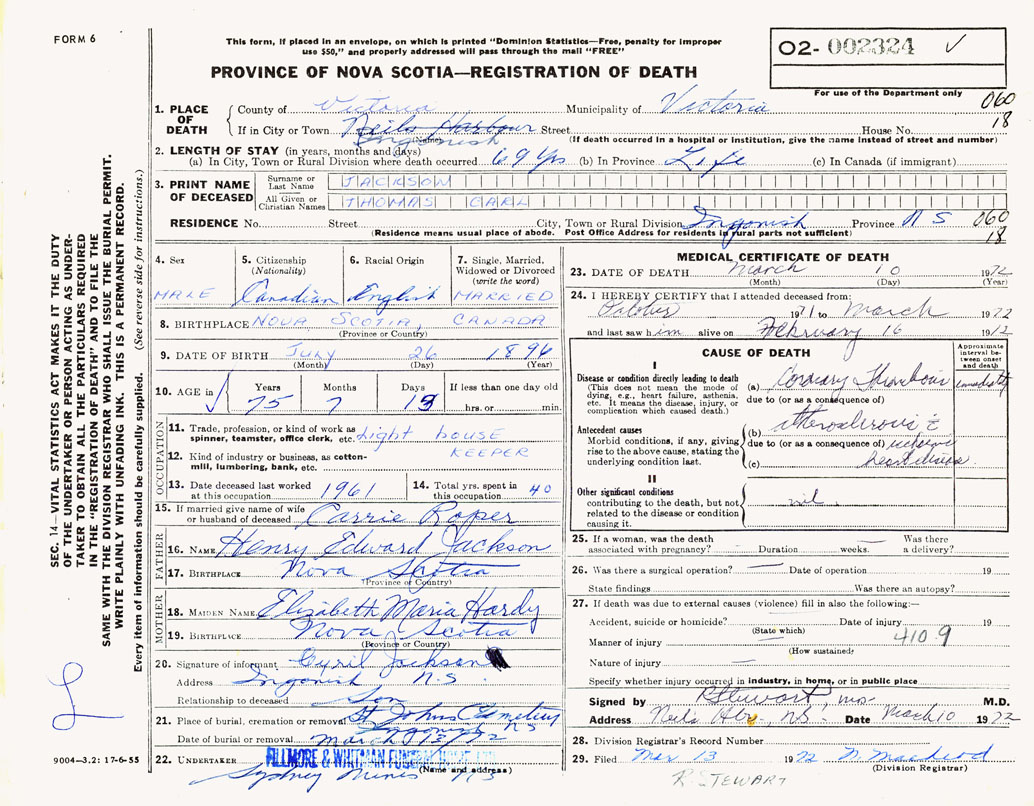 FORM 6
This form, if placed in an envelope, on which is printed "Dominion Statistics—Free, penalty for improper
use $50," and properly addressed will pass through the mail "FREE"
PROVINCE OF NOVA SCOTIA—REGISTRATION OF DEATH
O2- 002324 ✓
For use of the Department only
060
18
SEC. 14—VITAL STATISTICS ACT MAKES IT THE DUTY
OF THE UNDERTAKER OR PERSON ACTING AS UNDER-
TAKER TO OBTAIN ALL THE PARTICULARS REQUIRED
IN THE "REGISTRATION OF DEATH" AND TO FILE THE
SAME WITH THE DIVISION REGISTRAR WHO SHALL ISSUE THE BURIAL PERMIT.
WRITE PLAINLY WITH UNFADING INK. THIS IS A PERMANENT RECORD.
Every item of information should be carefully supplied. (See reverse side for instructions.)
1. PLACE OF DEATH
County of Victoria Municipality of Victoria
If in City or Town Neils Harbour Street House No.
Ingonish (Name) (If death occurred in a hospital or institution, give the name instead of street and number)
2. LENGTH OF STAY (in years, months and days)
(a) In City, Town or Rural Division where death occurred 69 Yrs (b) In Province Life (c) In Canada (if immigrant)
3. PRINT NAME OF DECEASED
Surname or Last Name JACKSON
All Given or Christian Names THOMAS CARL
RESIDENCE No. Street City, Town or Rural Division Ingonish Province N S 060
(Residence means usual place of abode. Post Office Address for residents in rural parts not sufficient) 18
4. Sex MALE
5. Citizenship (Nationality) Canadian
6. Racial Origin English
7. Single, Married, Widowed or Divorced (write the word) MARRIED
8. BIRTHPLACE NOVA SCOTIA, CANADA
(Province or Country)
9. DATE OF BIRTH July 26 1896
(Month) (Day) (Year)
10. AGE in Years Months Days If less than one day old
75 7 15 hrs. or min.
OCCUPATION
11. Trade, profession, or kind of work as
spinner, teamster, office clerk, etc. Light house
KEEPER
12. Kind of industry or business, as cotton-
mill, lumbering, bank, etc.
13. Date deceased last worked at this occupation 1961
14. Total yrs. spent in this occupation 40
15. If married give name of wife or husband of deceased Carrie Roper
FATHER
16. NAME Henry Edward Jackson
17. BIRTHPLACE Nova Scotia
(Province or Country)
MOTHER
18. MAIDEN NAME Elizabeth Maria Hardy
19. BIRTHPLACE Nova Scotia
(Province or Country)
20. Signature of informant Cyril Jackson
Address Ingonish N.S.
Relationship to deceased Son
21. Place of burial, cremation or removal St Johns Cemetery
Ingonish N S
Date of burial or removal March 13/72
22. UNDERTAKER FILLMORE & WHITMAN FUNERAL HOME
Sydney Mines N S (Name and address)
9004—3.2: 17-6-55
MEDICAL CERTIFICATE OF DEATH
23. DATE OF DEATH March 10 1972
(Month) (Day) (Year)
24. I HEREBY CERTIFY that I attended deceased from:
October 1971 to March 1972
and last saw him alive on February 16 1972
CAUSE OF DEATH
Approximate interval between onset and death
I
Disease or condition directly leading to death
(This does not mean the mode of
dying, e.g., heart failure, asthenia,
etc. It means the disease, injury, or
complication which caused death.)
(a) Coronary Thrombosis immediate
due to (or as a consequence of)
Antecedent causes
Morbid conditions, if any, giving
rise to the above cause, stating the
underlying condition last.
(b)
due to (or as a consequence of) ischemic
(c) heart disease
II
Other significant conditions
contributing to the death, but not
related to the disease or condition
causing it.
nil.
25. If a woman, was the death Was there
associated with pregnancy? Duration weeks. a delivery?
26. Was there a surgical operation? — Date of operation 19
State findings Was there an autopsy?
27. If death was due to external causes (violence) fill in also the following:—
Accident, suicide or homicide? Date of injury 19
(State which)
Manner of injury 410.9
(How sustained)
Nature of injury
Specify whether injury occurred in industry, in home, or in public place
Signed by R Stewart M.D.
Address Neils Hbr, N.S. Date March 10 1972
28. Division Registrar's Record Number
29. Filed Mar 13 1972
(Division Registrar)
R. STEWART